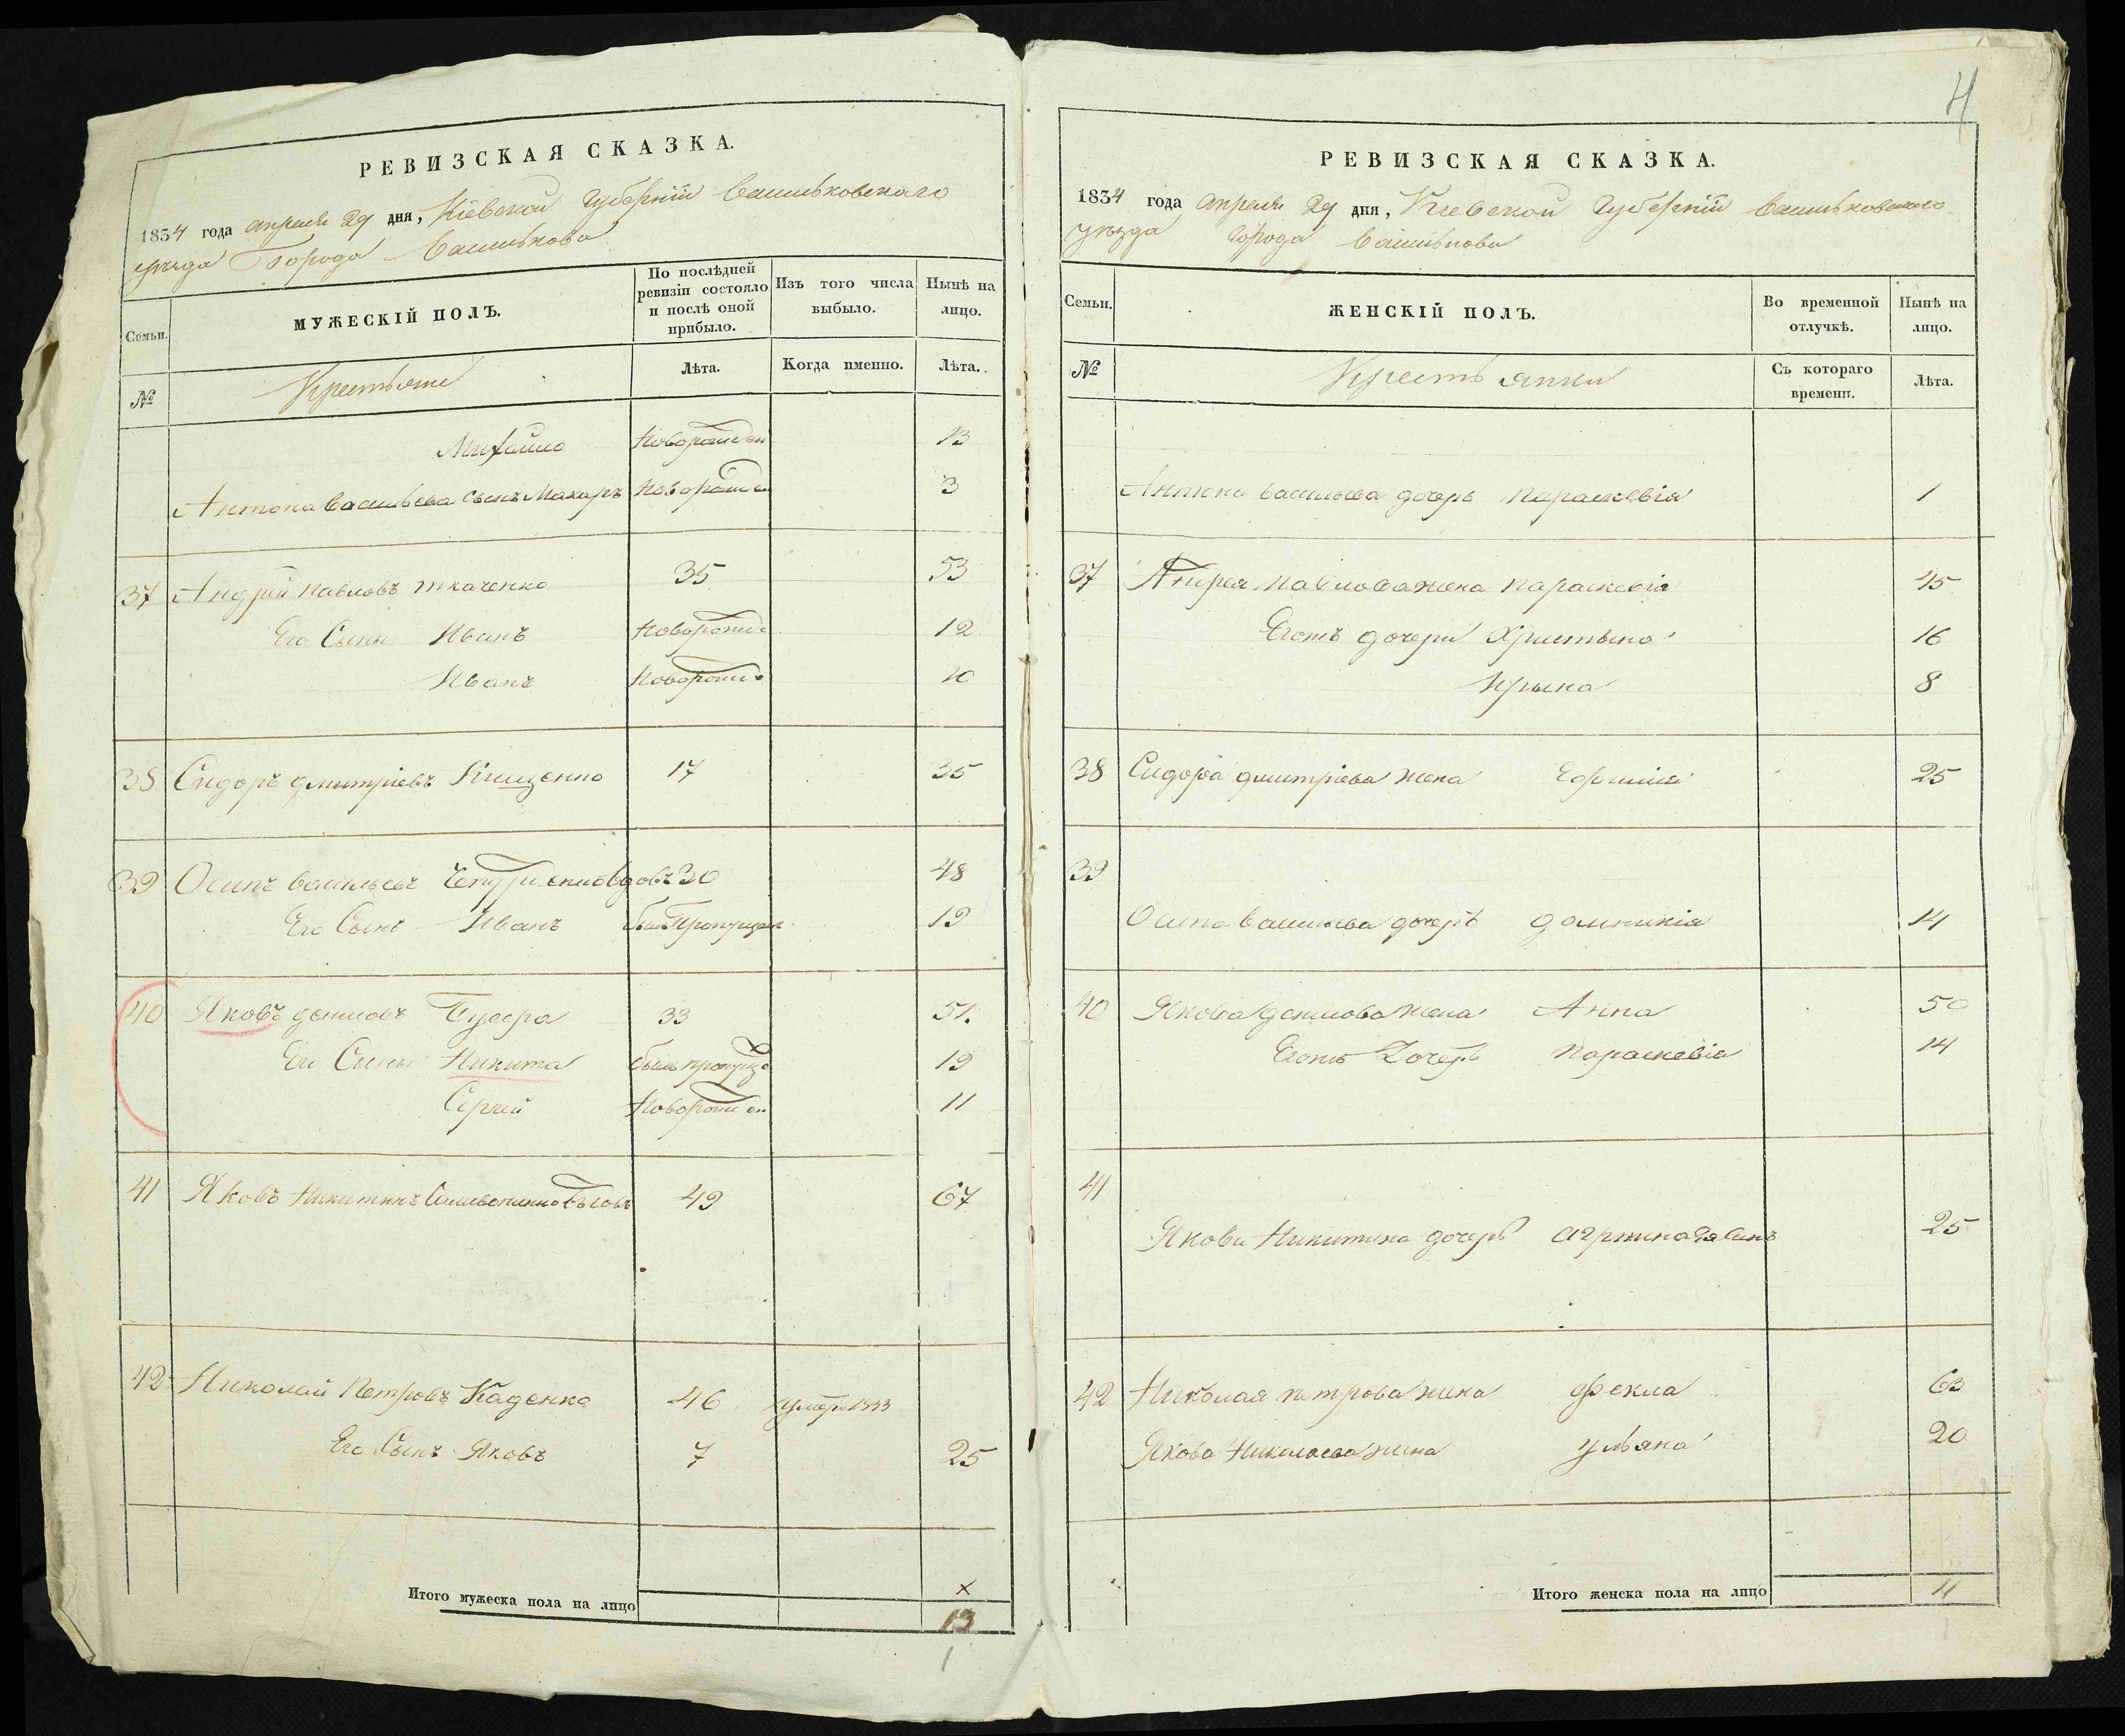 4
РЕВИЗСКАЯ СКАЗКА.
1834 года апреля 29 дня, Кіевской Губерніи Васильковского
уезда Города Василькова
Семьи. МУЖЕСКІЙ ПОЛЪ. По послѣдней ревизіи состояло и послѣ оной прибыло. Изъ того числа выбыло. Нынѣ на лицо.
№ Крестьяне Лѣта. Когда именно. Лѣта.
Михайло Новорожден 13
Антона Васильева Сынъ Макаръ Новорожден 3
37 Андрей Павловъ Ткаченко 35 53
Его Сыны Иванъ Новорожде 12
Иванъ Новорожде 10
38 Сидоръ дмитріевъ Кищенко 17 35
39 Осипъ Васильевъ вдовъ 30 48
Его Сынъ Иванъ былъ Пропущен 19
40 Яковъ даниловъ 33 51.
Его Сыны Никита былъ пропуще 19
Сергей Новорожден 11
41 Яковъ Никитинъ 49 67
42 Николай Петровъ Каденко 46 умеръ 1833
Его Сынъ Яковъ 7 25
Итого мужеска пола на лицо 13
РЕВИЗСКАЯ СКАЗКА.
1834 года апреля 29 дня, Киевской Губерніи Васильковского
уезда Города Василькова
Семьи. ЖЕНСКІЙ ПОЛЪ. Во временной отлучкѣ. Нынѣ на лицо.
№ Крестьянки Съ котораго времени. Лѣта.
Антона васильева дочерь Параскевія 1
37 Андрея Павлова жена Параскевія 45
Егожъ дочери Христына 16
Ирына 8
38 Сидора дмитріева жена Ефимія 25
39
Осипа Васильева дочерь домникія 14
40 Якова данилова жена Анна 50
Егожъ Дочерь Параскевія 14
41
Якова Никитина дочерь 25
42 Николая петрова жена Фекла 63
Якова Николаева жена ульяна 20
Итого женска пола на лицо 11